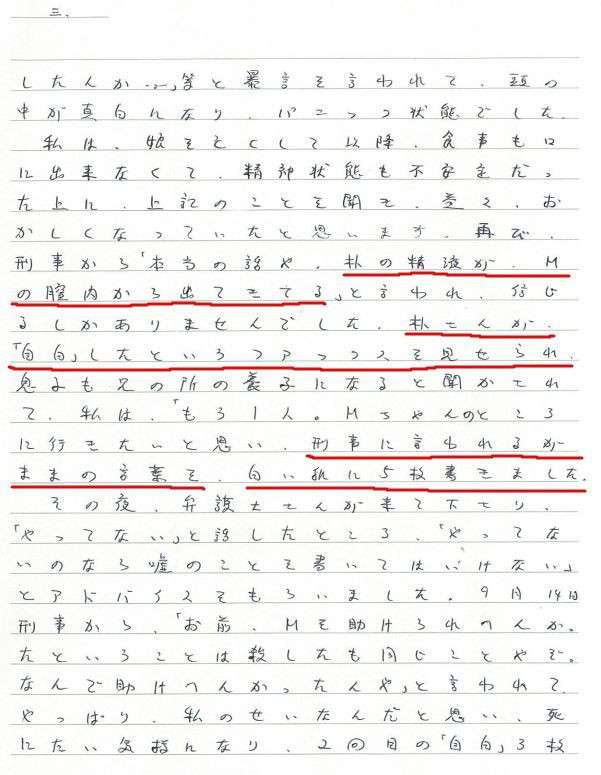 三.
したんか…」等と暴言を言われて、頭の
中が真白になり、パニック状態でした。
私は、娘を亡くして以降、食事も口
に出来なくて、精神状態も不安定だっ
た上に、上記のことを聞き、益々、お
かしくなっていたと思います。再び、
刑事から「本当の話や、朴の精液が、M
の膣内から出てきてる」と言われ、信じ
るしかありませんでした。朴さんが、
「自白」したというファックスを見せられ、
息子も兄の所の養子になると聞かされ
て、私は、「もう1人。Mちゃんのところ
に行きたいと思い、刑事に言われるが
ままの言葉を、白い紙に5枚書きました。
その夜、弁護士さんが来て下さり、
「やってない」と話したところ、「やってな
いのなら嘘のことを書いてはいけない」
とアドバイスをもらいました。9月14日
刑事から、「お前、Mを助けられへんか。
たということは殺したも同じことやぞ。
なんで助けへんかったんや」と言われて、
やっぱり、私のせいなんだと思い、死
にたい気持になり、2回目の「自白」3枚